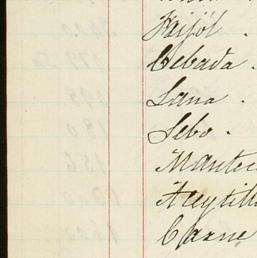 Frijól.
Cebada.
Lana.
Sebo.
Mantec
Aceytill
Carne